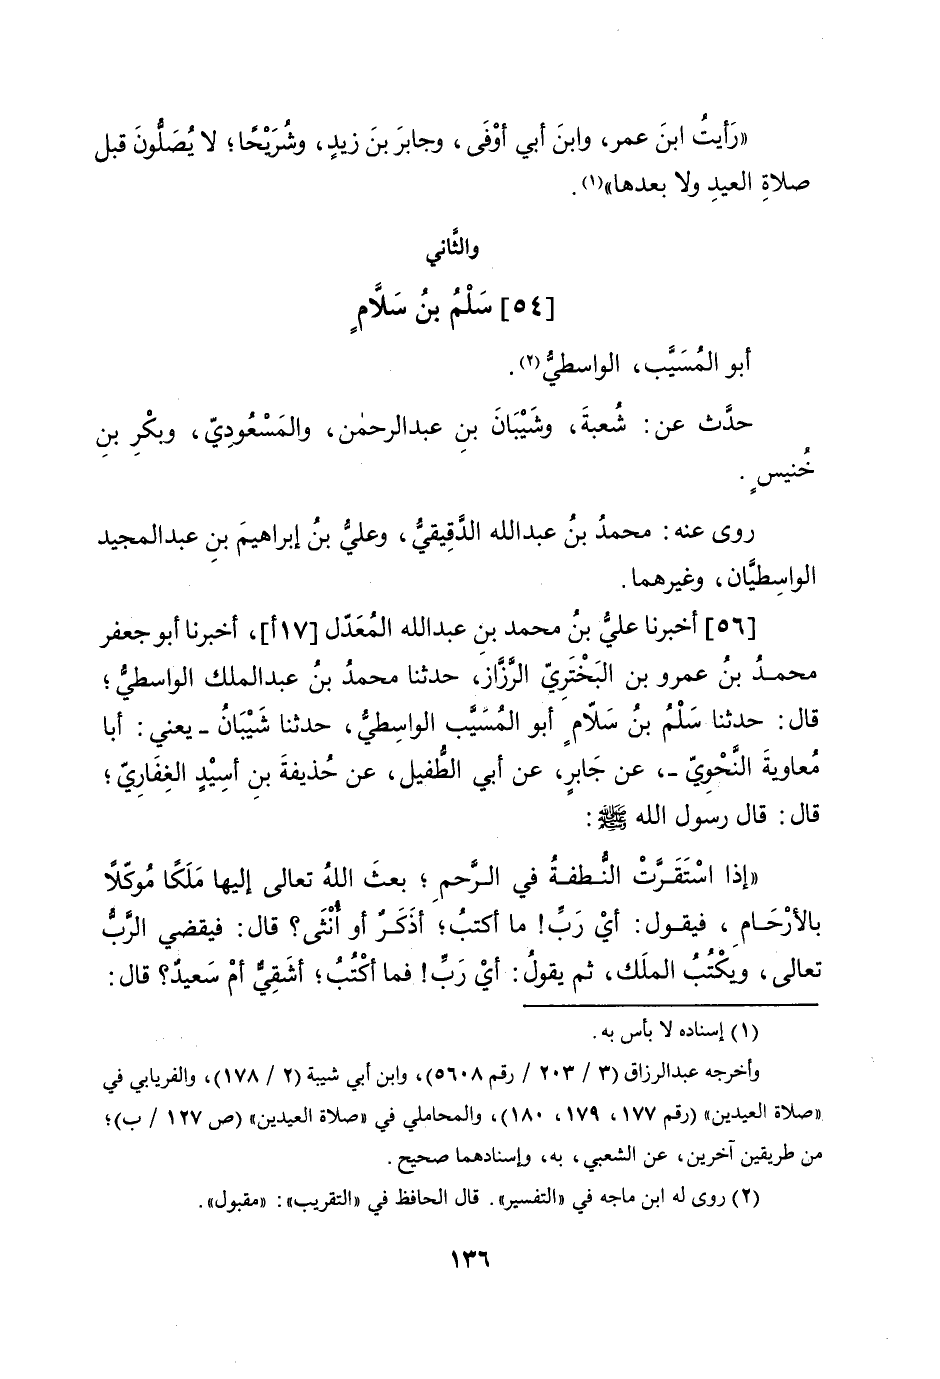 «رَأيتُ ابنَ عمر، وابنَ أبي أوْفَى، وجابرَ بنَ زيدٍ، وشُرَيْحًا؛ لا يُصَلُّونَ قبل
صلاةِ العيدِ ولا بعدها»(١).
والثَّاني
[٥٤] سَلْمُ بنُ سَلاَّمٍ
أبو المُسَيَّب، الواسطيُّ(٢).
حدَّث عن: شُعبةَ، وشَيْبَانَ بنِ عبدالرحمٰن، والمَسْعُودِيّ، وبكْرِ بنِ
خُنيسٍ.
روى عنه: محمدُ بنُ عبدالله الدَّقِيقيُّ، وعليُّ بنُ إبراهيمَ بنِ عبدالمجيد
الواسِطيَّان، وغيرهما.
[٥٦] أخبرنا عليُّ بنُ محمد بنِ عبدالله المُعَدّل [١٧أ]، أخبرنا أبو جعفر
محمدُ بنُ عمرو بن البَخْتَرِيّ الرَّزَّاز، حدثنا محمدُ بنُ عبدالملك الواسطيُّ؛
قال: حدثنا سَلْمُ بنُ سَلَّامٍ أبو المُسَيَّب الواسِطيُّ، حدثنا شَيْبَانُ ـ يعني: أبا
مُعاويةَ النَّحْوِيّ ـ، عن جَابرٍ، عن أبي الطُّفيل، عن حُذيفةَ بنِ أسِيْدٍ الغِفَاريّ؛
قال: قال رسول الله ﷺ:
«إذا اسْتَقَرَّتْ النُّطفةُ في الرَّحمِ؛ بعثَ اللهُ تعالى إليها مَلَكًا مُوكّلًا
بالأرْحَامِ، فيقول: أيْ رَبِّ! ما أكتبُ؛ أذَكَرٌ أو أُنْثَى؟ قال: فيقضي الرَّبُّ
تعالى، ويكْتُبُ الملَك، ثم يقولُ: أيْ رَبِّ! فما أكْتُبُ؛ أشَقِيٌّ أمْ سَعيدٌ؟ قال:
(١) إسناده لا بأس به.
وأخرجه عبدالرزاق (٣ / ٢٠٣ / رقم ٥٦٠٨)، وابن أبي شيبة (٢ / ١٧٨)، والفريابي في
«صلاة العيدين» (رقم ١٧٧، ١٧٩، ١٨٠)، والمحاملي في «صلاة العيدين» (ص ١٢٧ / ب)؛
من طريقين آخرين، عن الشعبي، به، وإسنادهما صحيح.
(٢) روى له ابن ماجه في «التفسير». قال الحافظ في «التقريب»: «مقبول».
١٣٦